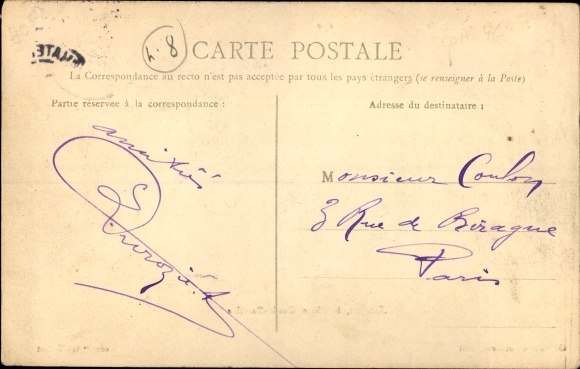 4.8
CARTE POSTALE
La Correspondance au recto n'est pas acceptée par tous les pays étrangers (se renseigner à la Poste)
Partie réservée à la correspondance :
Adresse du destinataire :
amitiés
Monsieur Coulon
3 Rue de Biragne
Paris